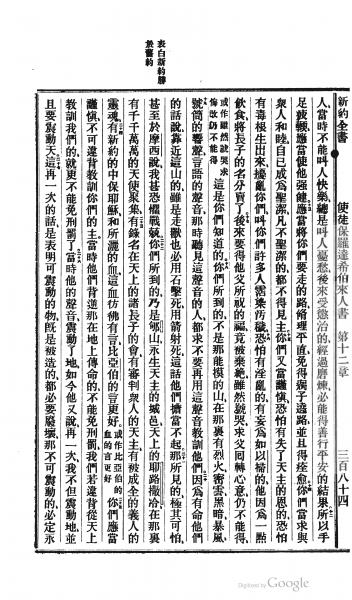 新約全書　使徒保羅達希伯來人書　第十二章　三百八十四
人當時不能叫人快樂總是叫人憂愁後來受懲治的經過磨煉必能得善行平安的結果所以手
足疲軟應當使他强健應當將你們要走的路脩理平直免得瘸子迷路並且得痊愈你們當求與
衆人和睦自己成爲聖潔凡不聖潔的都不得見主你們又當謹愼恐怕有失了天主的恩的恐怕
有毒根生出來擾亂你們叫你們許多人被染汚穢恐怕有淫亂的有妄爲如以掃的他因爲一點
飲食將長子的名分賣了後來要得他父所祝的福竟被棄絕雖然號哭求父回轉心意仍不能得
或作雖然號哭求悔改仍不能得　這是你們知道的你們所到的不是那能摸的山在那裏有烈火密雲黑暗暴風
號筒的響聲言語的聲音那時聽見這聲音的人都求不要再用這聲音教訓他們因爲有命他們
的話說靠近這山的雖是走獸也必用石擊死用箭射死這話他們擔當不起那所見的極其可怕
甚至於摩西說我甚恐懼戰兢你們所到的乃是郇山永生天主的城邑天上的耶路撒冷在那裏
有千千萬萬的天使聚集有錄名在天上的諸長子的會有審判衆人的天主有被成全的義人的
靈魂有新約的中保耶穌和所灑的血這血仿佛有言比亞伯的言更好　或作比亞伯的血的言更好　你們應當
謹愼不可違背教訓你們的主當時他們背逆那在地上傳命的不能免刑罰我們若違背從天上
教訓我們的就更不能免刑罰了當時他的聲音震動了地如今他又說再一次我不但震動地並
且要震動天這再一次的話是表明可震動的物旣是被造的都必要廢壞那不可震動的必永存
表白新約勝
於舊約
Digitized by Google